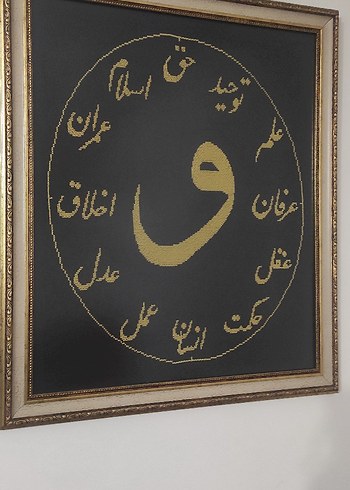 حق
توحید
علم
عرفان
عقل
حکمت
انسان
عمل
عدل
اخلاق
عمران
اسلام
و